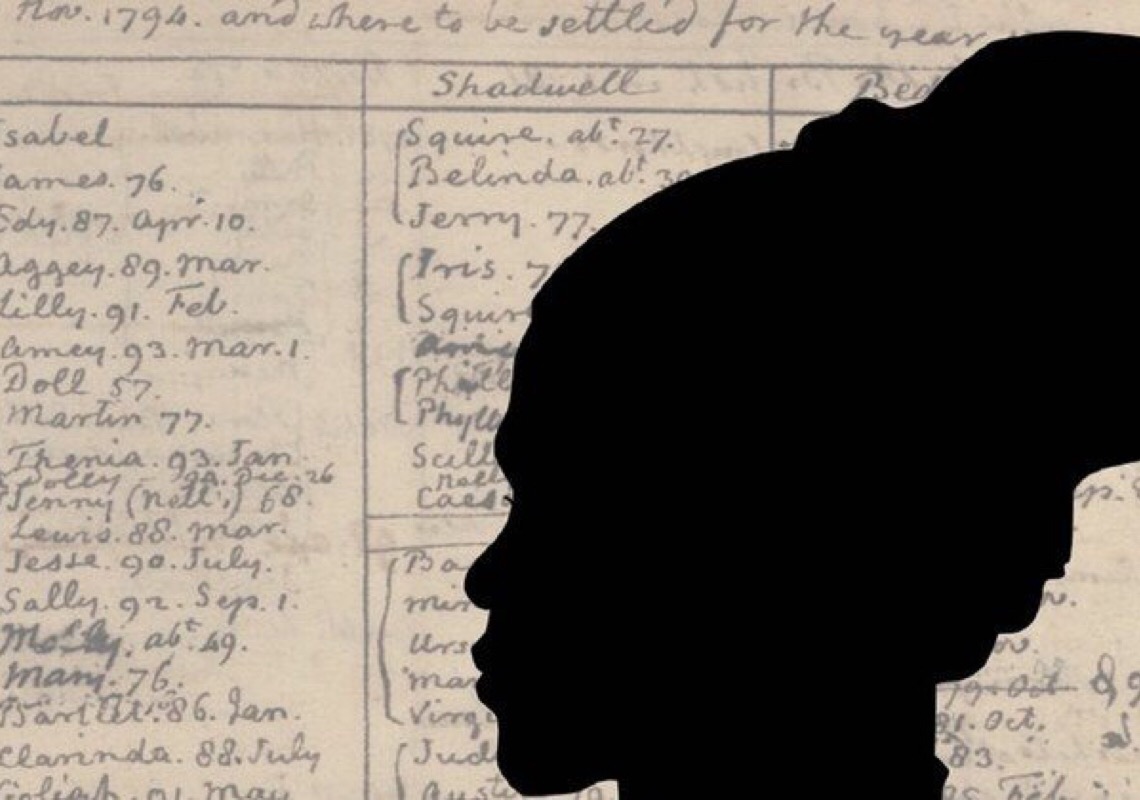 Nov. 1794. and where to be settled for the year
Shadwell
Isabel
James. 76.
Edy. 87. Apr. 10.
Aggey. 89. Mar.
Lilly. 91. Feb.
Amey. 93. Mar. 1.
Doll 57.
Martin 77.
Thenia. 93. Jan
Dolly 94. Dec. 26
Jenny (Nell's) 68.
Lewis. 88. Mar.
Jesse. 90. July.
Sally. 92. Sep. 1.
Molly. abt. 49.
Mary. 76.
Bartlet. 86. Jan.
Clarinda. 88. July
Goliah. 91. May
Squire. abt. 27.
Belinda. abt. 39
Jerry. 77.
Iris. 7
Squir
Phill
Phyll
Scill
Caes
Ba
Min
Urs
Mar
Virg
Jud
Aust
Bed
79. Oct
81. Oct.
83.
Feb.